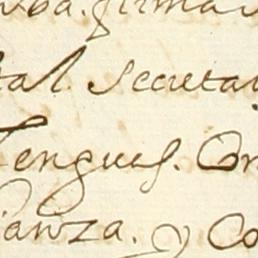 firma
tal. Secreta
Lengues. On
ianza. y Co